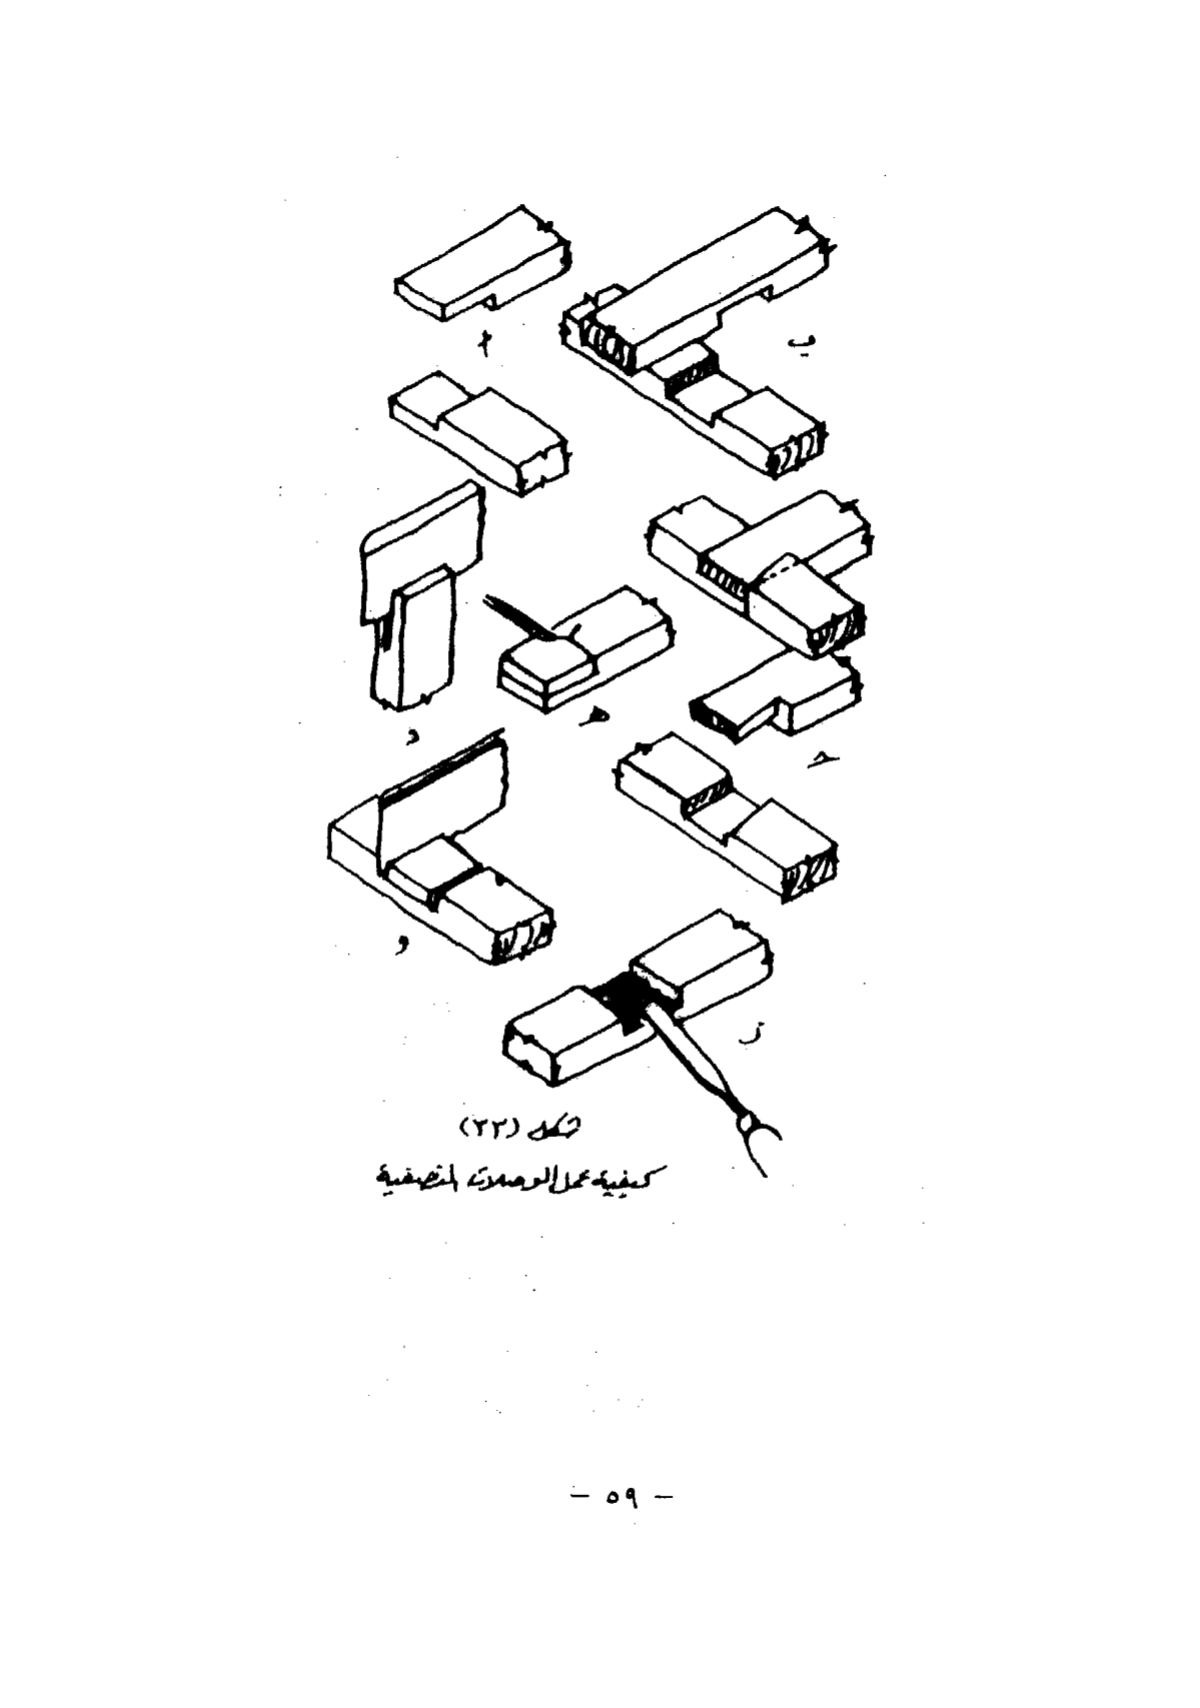 أ
ب
د
هـ
حـ
و
ز
شكل (٣٣)
كيفية عمل الوصلات النصفية
- ٥٩ -